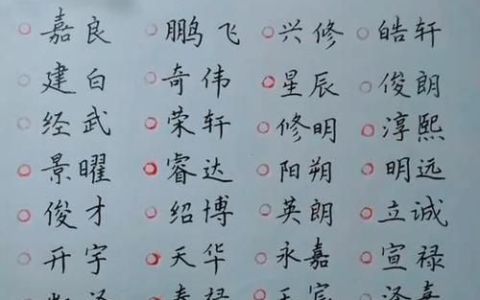 嘉良 鹏飞 兴修 皓轩
建白 奇伟 星辰 俊朗
经武 荣轩 修明 淳熙
景曜 睿达 阳朔 明远
俊才 绍博 英朗 立诚
开宇 天华 永嘉 宣禄